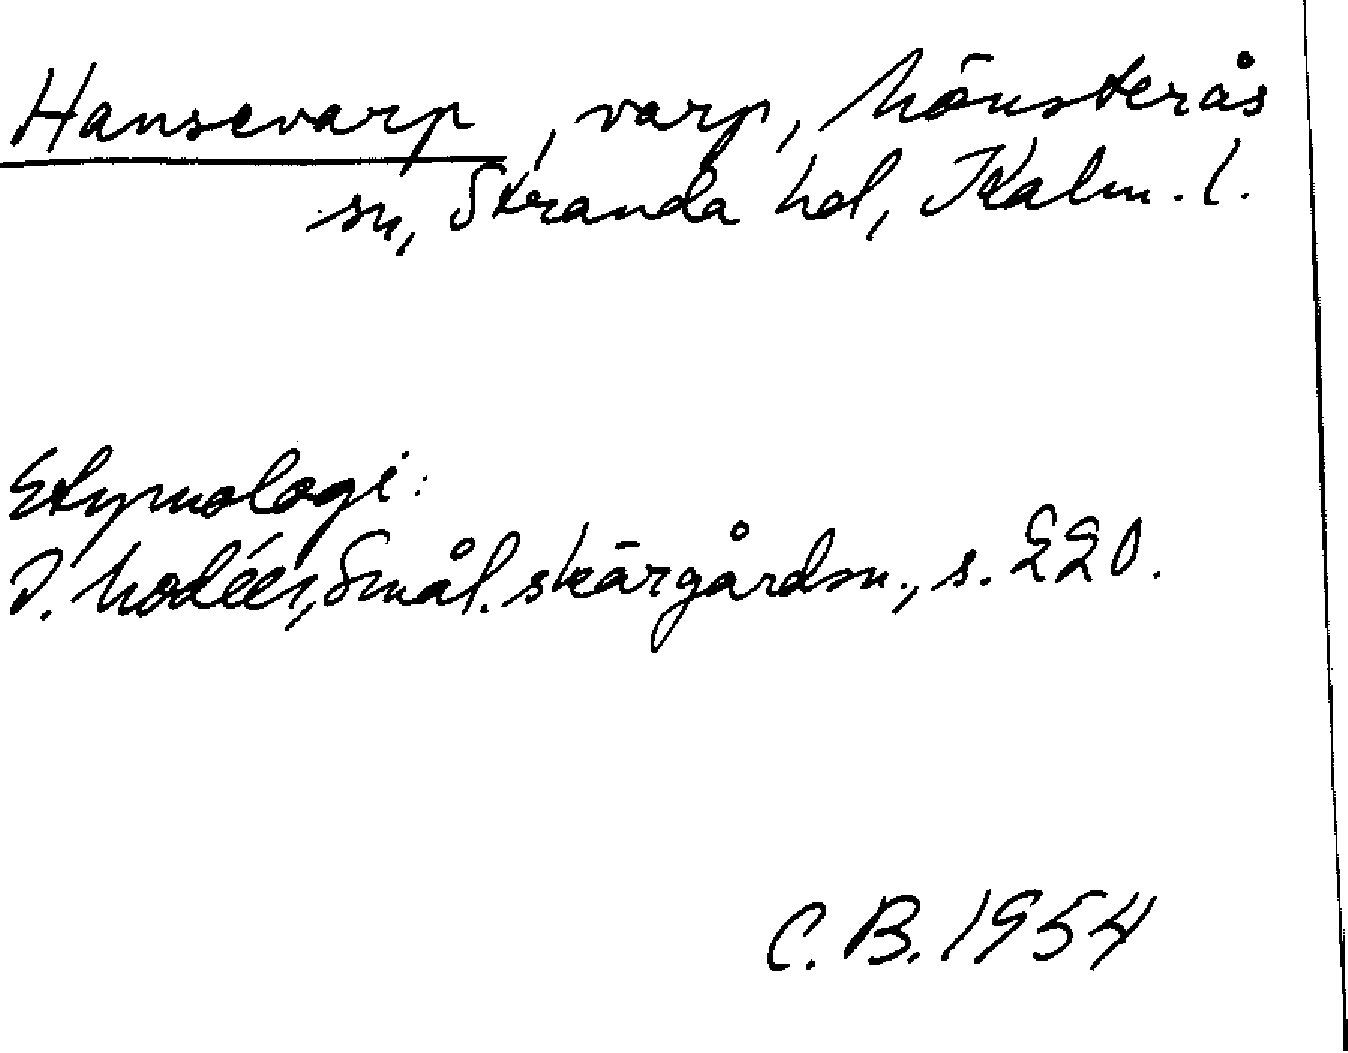 Hansevarp, varp, Mönsterås
sn, Stranda hd, Kalm. l.
Etymologi:
I. Modéer, Smål. skärgårdsn., s. 220.
C. B. 1954